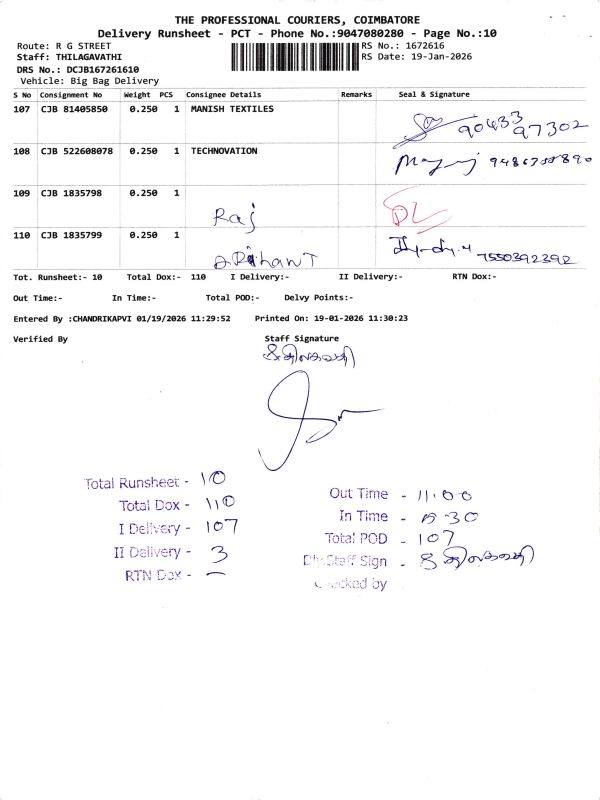 THE PROFESSIONAL COURIERS, COIMBATORE
Delivery Runsheet - PCT - Phone No.:9047080280 - Page No.:10
Route: R G STREET RS No.: 1672616
Staff: THILAGAVATHI RS Date: 19-Jan-2026
DRS No.: DCJB167261610
Vehicle: Big Bag Delivery
S No Consignment No Weight PCS Consignee Details Remarks Seal & Signature
107 CJB 81405850 0.250 1 MANISH TEXTILES 90433 97302
108 CJB 522608078 0.250 1 TECHNOVATION
109 CJB 1835798 0.250 1 Raj
110 CJB 1835799 0.250 1 ARihanT 7550392392
Tot. Runsheet:- 10 Total Dox:- 110 I Delivery:- II Delivery:- RTN Dox:-
Out Time:- In Time:- Total POD:- Delvy Points:-
Entered By :CHANDRIKAPVI 01/19/2026 11:29:52 Printed On: 19-01-2026 11:30:23
Verified By Staff Signature
Total Runsheet - 10
Total Dox - 110
I Delivery - 107
II Delivery - 3
RTN Dox - —
Out Time - 11:00
In Time - 30
Total POD - 107
Dlv Staff Sign -
Checked by